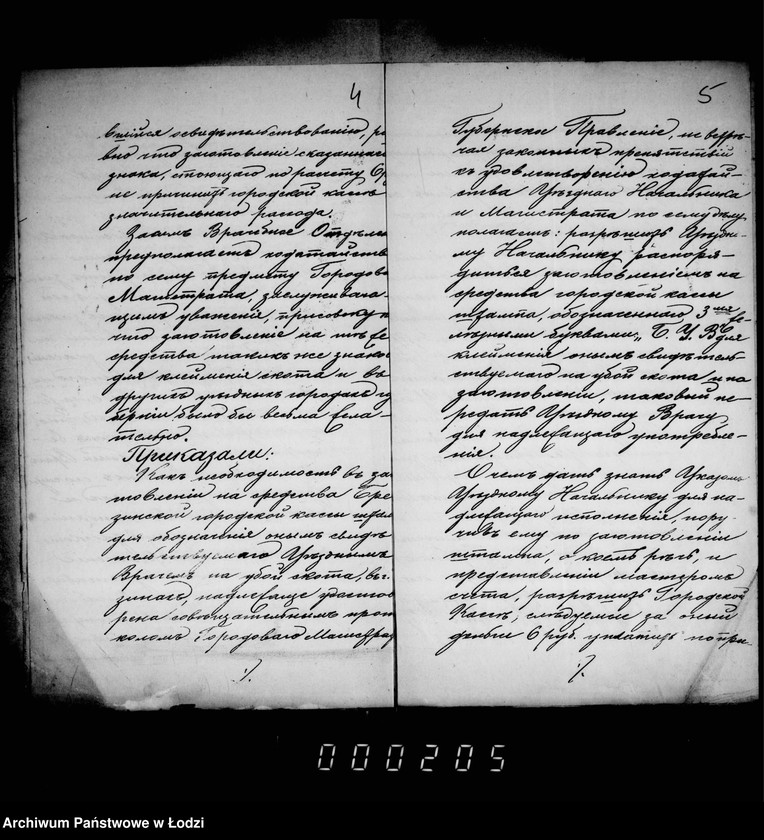 4
вшійся освидѣтельствованію, ра
вно что заготовленіе сказаннаго
знака, стоющаго по расчету 6 р
не причинитъ городской кассѣ
значительнаго расхода.
Засимъ Врачебное Отдѣлен
предполагаетъ ходатайств
по сему предмету Городова
Магистрата, заслуживаю
щимъ уваженія, присовокуп
что заготовленіе на тѣ же
средства такихъ же знаков
для клейменія скота и въ
другихъ уѣздныхъ городахъ гу
берніи было бы весьма жела-
тельно.
Приказали:
Какъ необходимость въ за
товленіи на средства Бре
зинской городской кассы штам
для обозначенія онымъ свидѣ
тельствуемаго Уѣзднымъ
Врачемъ на убой скота, въ г.
надлежаще удостов
рена совѣщательнымъ прот
коломъ Городоваго Магистрат
./.
5
Губернское Правленіе, не встрѣ-
чая законныхъ препятствій
къ удовлетворенію ходатай-
ства Уѣзднаго Начальника
и Магистрата по сему дѣлу,
полагаетъ: разрѣшить Уѣздно-
му Начальнику распоря-
диться заготовленіемъ на
средства городской кассы
штампа, обозначеннаго 3мя
буквами „Б. У. В." для
клейменія онымъ свидѣтель-
ствуемаго на убой скота и по
заготовленіи, таковый пе-
редать Уѣздному Врачу
для надлежащаго употребле-
нія.
О чемъ дать знать Указомъ
Уѣздному Начальнику для на-
длежащаго исполненія, пору-
чивъ ему по заготовленіи
штампа, о коемъ рѣчь, и
представленіи мастеромъ
счета, разрѣшить Городской
Кассѣ, слѣдуемые за оный
деньги 6 руб. уплатить по при-
./.
000205
Archiwum Państwowe w Łodzi